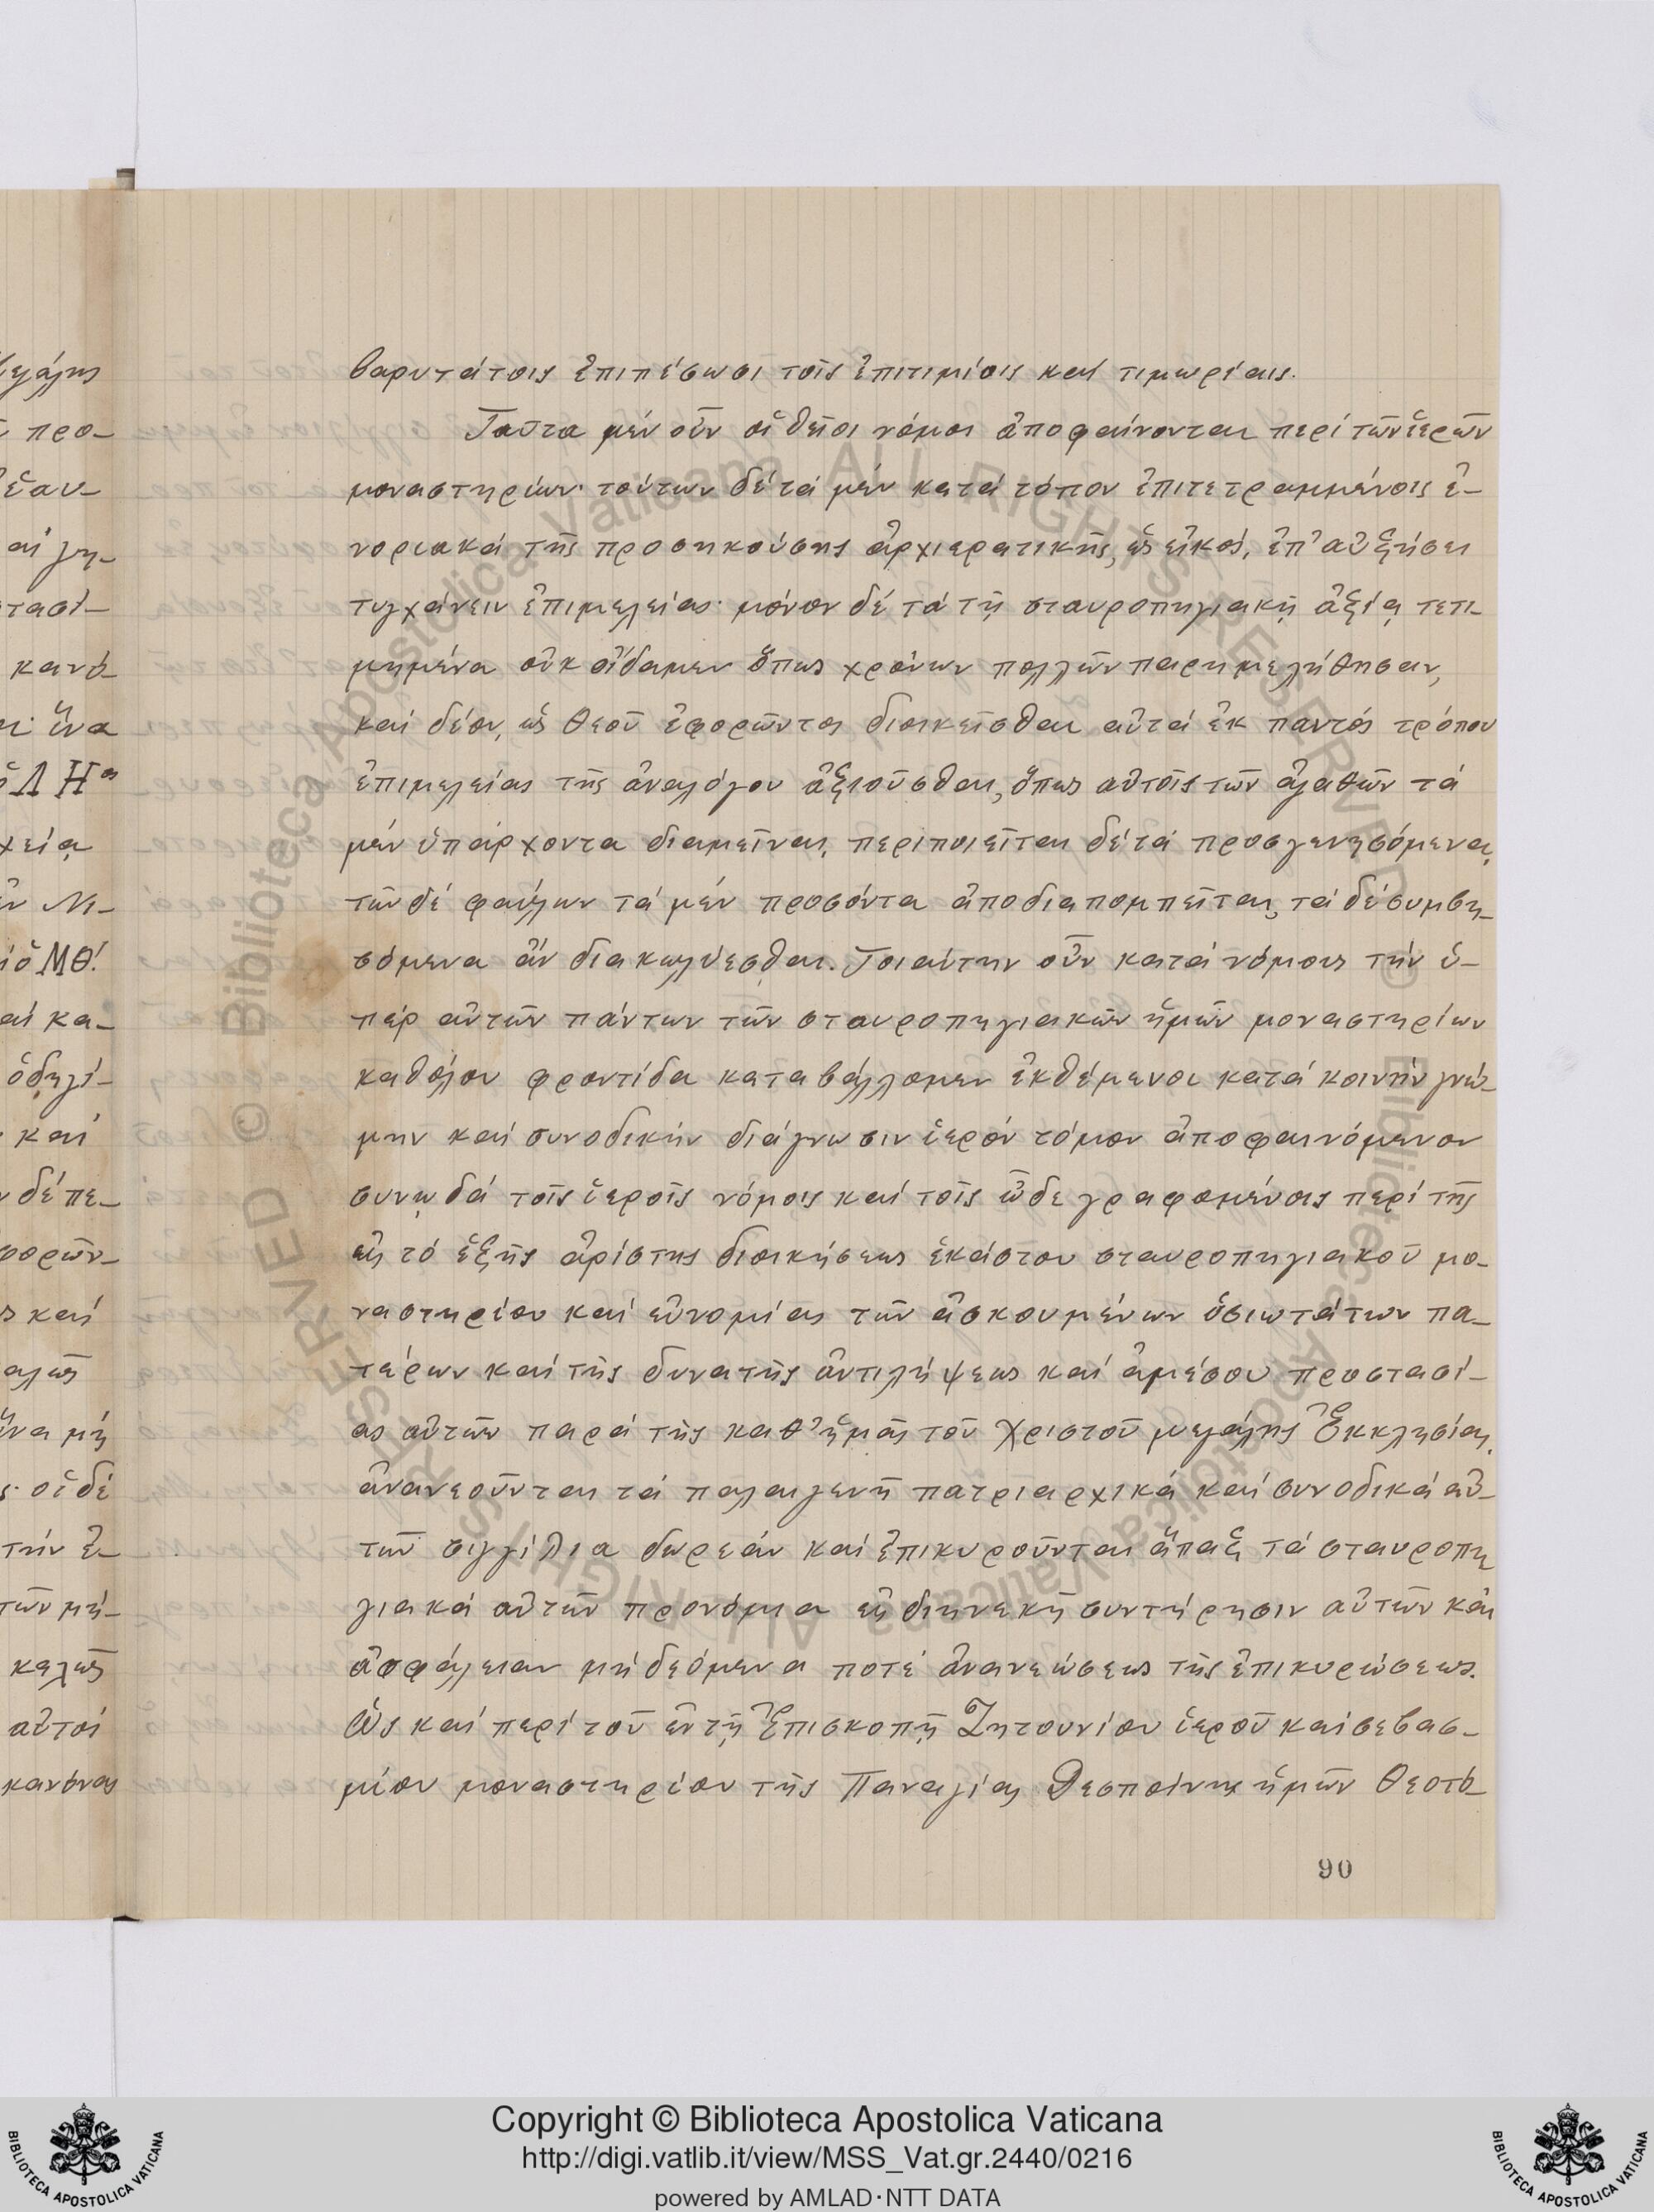 βαρυτάτοις ἐπιπέσωσι τοῖς ἐπιτιμίοις καί τιμωρίαις.
Ταῦτα μέν οὖν οἱ θεῖοι νόμοι ἀποφαίνονται περί τῶν ἱερῶν
μοναστηρίων· τούτων δέ τά μέν κατά τόπον ἐπιτετραμμένοις ἐ-
νοριακά τῆς προσηκούσης ἀρχιερατικῆς, ὡς εἰκός, ἐπ' αὐξήσει
τυγχάνειν ἐπιμελείας· μόνον δέ τά τῇ σταυροπηγιακῇ ἀξίᾳ τετι-
μημένα οὐκ οἴδαμεν ὅπως χρόνων πολλῶν παρημελήθησαν,
καί δέον, ὡς Θεοῦ ἐφορῶντος διοικεῖσθαι αὐτά ἐκ παντός τρόπου
ἐπιμελείας τῆς ἀναλόγου ἀξιοῦσθαι, ὅπως αὐτοῖς τῶν ἀγαθῶν τά
μέν ὑπάρχοντα διαμεῖναι, περιποιεῖται δέ τά προσγενησόμενα,
τῶν δέ φαύλων τά μέν προσόντα ἀποδιαπομπεῖται, τά δέ συμβη-
σόμενα ἄν διακωλύεσθαι. Τοιαύτην οὖν κατά νόμους τήν ὑ-
πέρ αὐτῶν πάντων τῶν σταυροπηγιακῶν ἡμῶν μοναστηρίων
καθόλου φροντίδα καταβάλλομεν ἐκθέμενοι κατά κοινήν γνώ-
μην καί συνοδικήν διάγνωσιν ἱερόν τόμον ἀποφαινόμενον
συνῳδά τοῖς ἱεροῖς νόμοις καί τοῖς ὧδε γραφομένοις περί τῆς
εἰς τό ἑξῆς ἀρίστης διοικήσεως ἑκάστου σταυροπηγιακοῦ μο-
ναστηρίου καί εὐνομίας τῶν ἀσκουμένων ὁσιωτάτων πα-
τέρων καί τῆς δυνατῆς ἀντιλήψεως καί ἀμέσου προστασί-
ας αὐτῶν παρά τῆς καθ' ἡμᾶς τοῦ Χριστοῦ μεγάλης Ἐκκλησίας,
ἀνανεοῦνται τά παλαιγενῆ πατριαρχικά καί συνοδικά αὐ-
τῶν σιγγίλια δωρεάν καί ἐπικυροῦνται ἅπαξ τά σταυροπη
γιακά αὐτῶν προνόμια εἰς διηνεκῆ συντήρησιν αὐτῶν καί
ἀσφάλειαν μή δεόμενα ποτέ ἀνανεώσεως τῆς ἐπικυρώσεως.
Ὡς καί περί τοῦ ἐν τῇ Ἐπισκοπῇ Ζητουνίου ἱεροῦ καί σεβασ-
μίου μοναστηρίου τῆς Παναγίας Δεσποίνης ἡμῶν Θεοτό-
90
Copyright © Biblioteca Apostolica Vaticana
http://digi.vatlib.it/view/MSS_Vat.gr.2440/0216
powered by AMLAD·NTT DATA